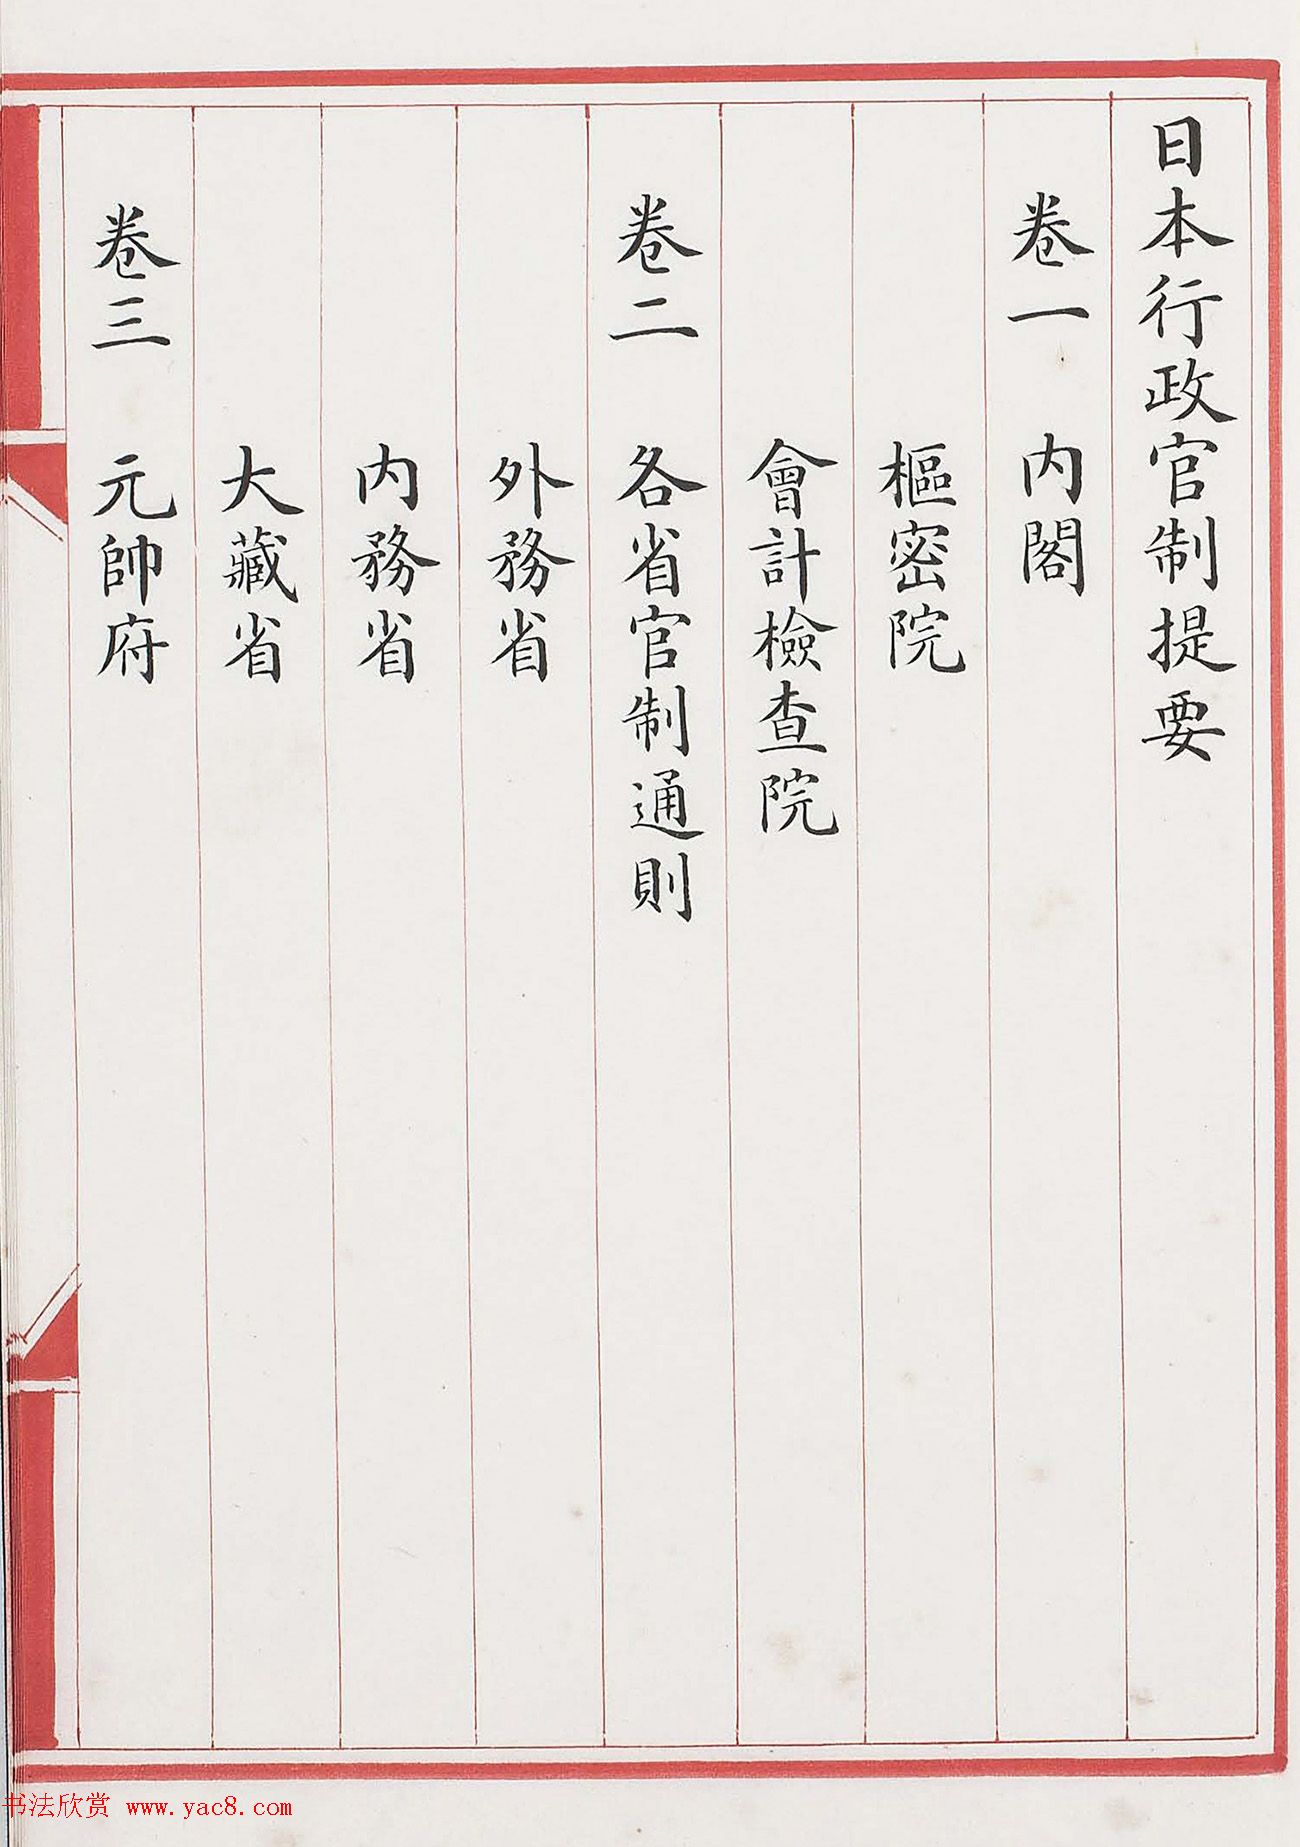 日本行政官制提要
卷一 内閣
樞密院
會計檢查院
卷二 各省官制通則
外務省
内務省
大藏省
卷三 元帥府
书法欣赏 www.yac8.com